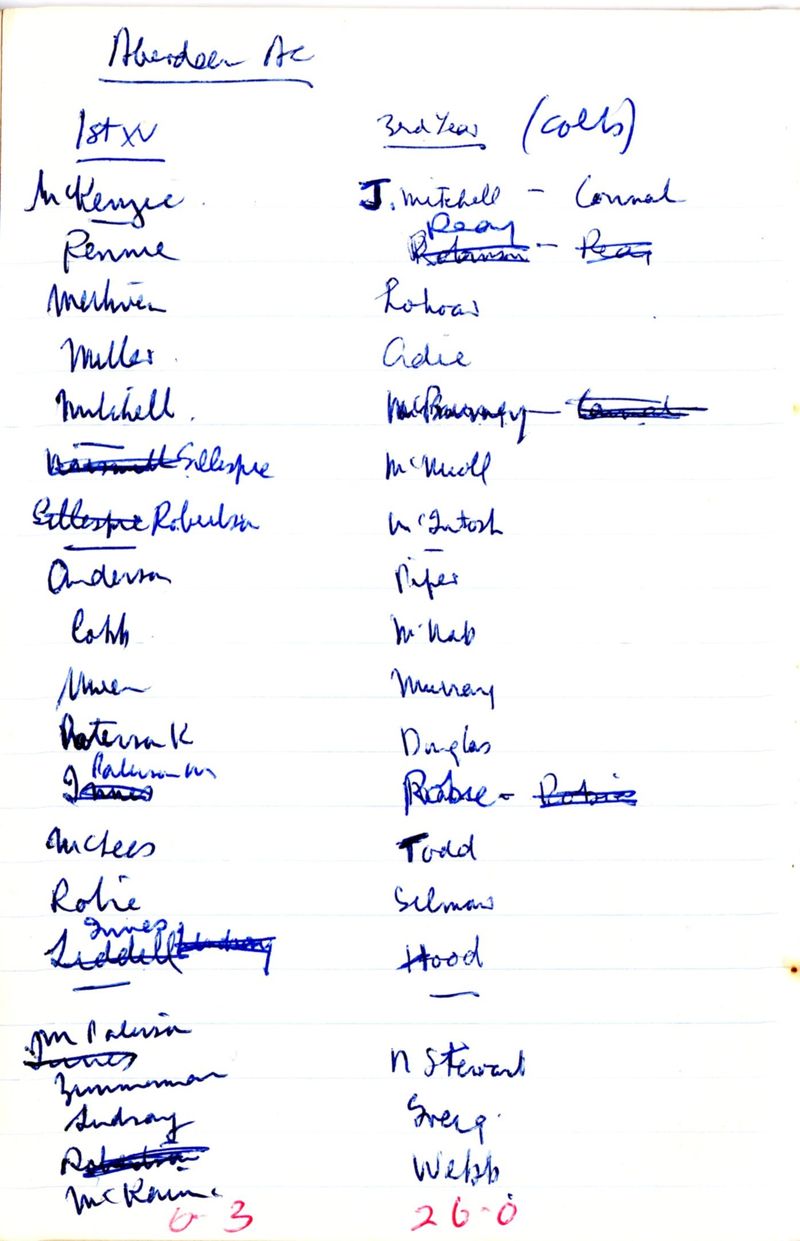 Aberdeen Ac
1st XV 3rd Year (Colts)
McKenzie J. Mitchell - Connal
Rennie Reay Robinson - Reay
Methven
Miller Adie
Mitchell McBurney - Connal
Gillespie McNicoll
Gillespie Robertson McIntosh
Anderson Piper
Cobb McNab
Murray
Paterson K Douglas
Paterson
Innes Robbie - Robbie
McLees Todd
Robie
Innes
Liddell Lindsay Hood
Jm Paterson
Innes N Stewart
Zimmerman
Lindsay Greig
Robertson Webb
6-3 26-0